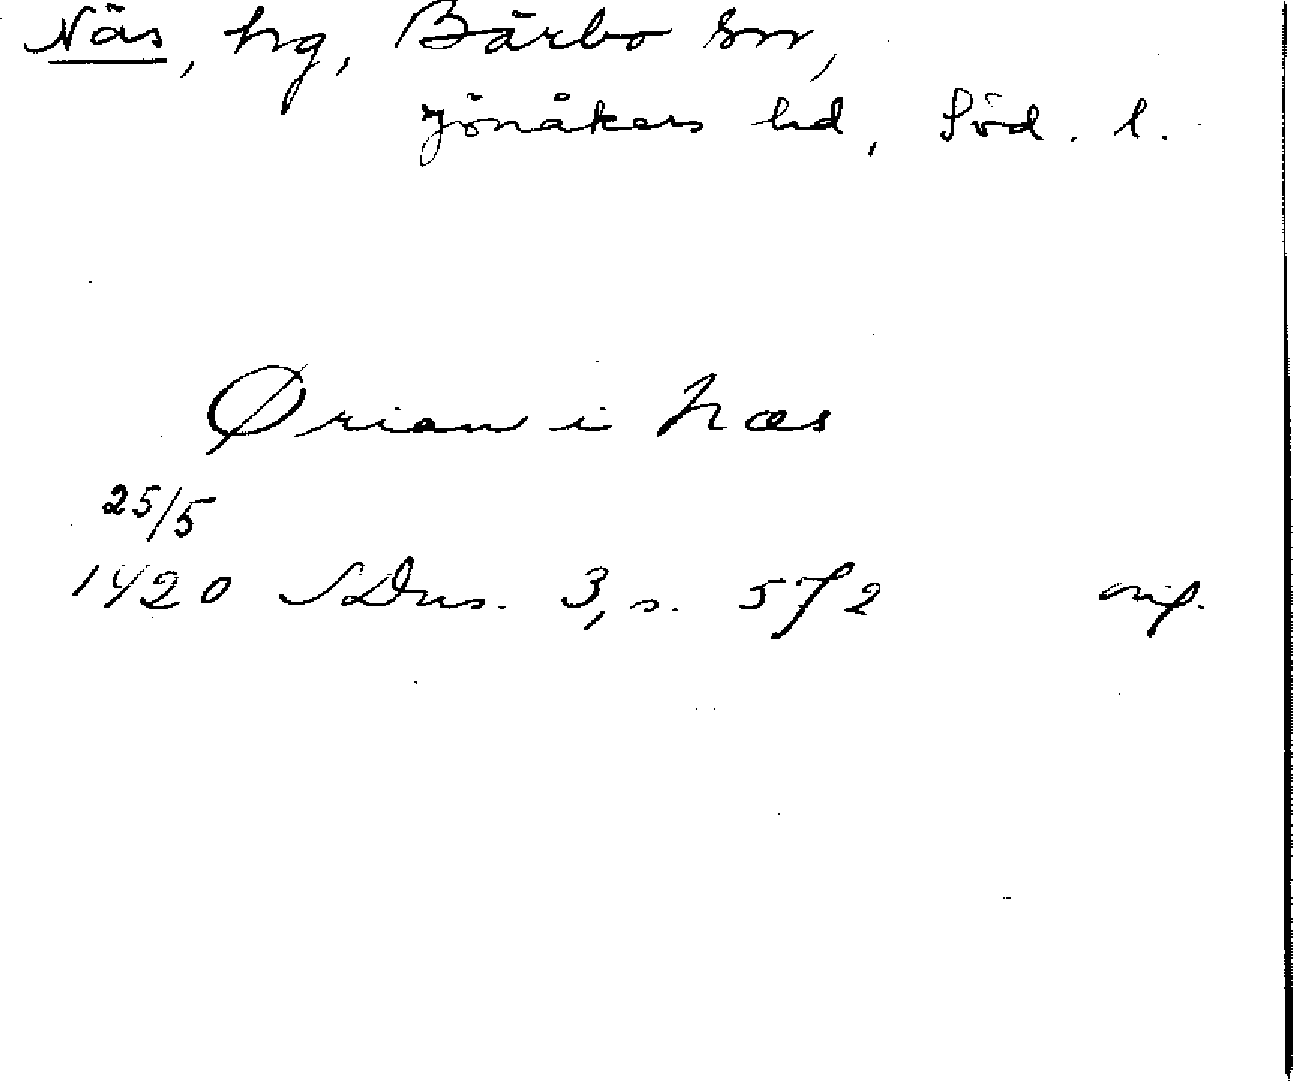 Näs, hg, Bärbo sn,
Jönåkers hd, Söd. l.
Ørian i Næs
25/5
1420 SDns. 3, s. 572 orig.